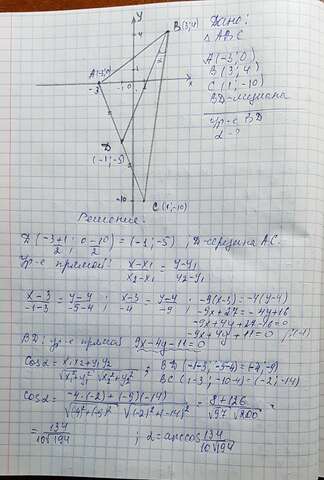 Дано:
△ ABC
A(-3; 0)
B(3; 4)
C(1; -10)
BD-медиана
Ур-е BD
α-?
y
4
B(3;4)
A(-3;0)
-3
-1 0
x
D
(-1;-5)
-10
C(1;-10)
Решение.
D(-3+1/2; 0-10/2) = (-1; -5), D-середина AC.
Ур-е прямой: x-x₁/x₂-x₁ = y-y₁/y₂-y₁
x-3/-1-3 = y-4/-5-4; x-3/-4 = y-4/-9; -9(x-3)=-4(y-4)
-9x+27=-4y+16
-9x+4y+27-16=0
-9x+4y+11=0 /(-1)
BD: ур-е прямой 9x-4y-11=0
Cosα = x₁x₂+y₁y₂/√x₁²+y₁² √x₂²+y₂²; BD(-1-3; -5-4)=(-4; -9)
BC(1-3; -10-4)=(-2; -14)
Cosα = -4·(-2)+(-9)(-14)/√(-4)²+(-9)² √(-2)²+(-14)² = 8+126/√97 √200 =
= 134/10√194; α=arccos 134/10√194